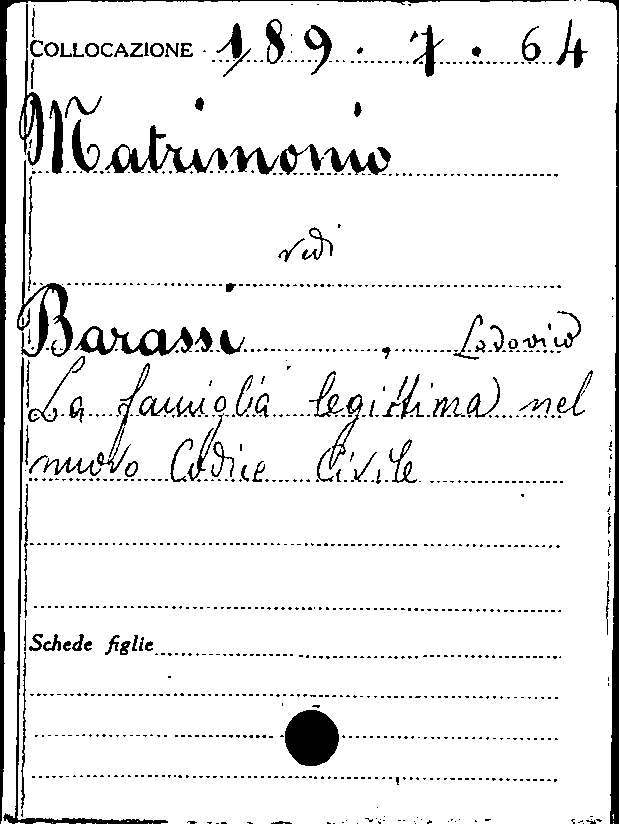 COLLOCAZIONE 189.7.64
Matrimonio
vedi
Barassi, Lodovico
La famiglia legittima nel
nuovo Codice Civile
Schede figlie